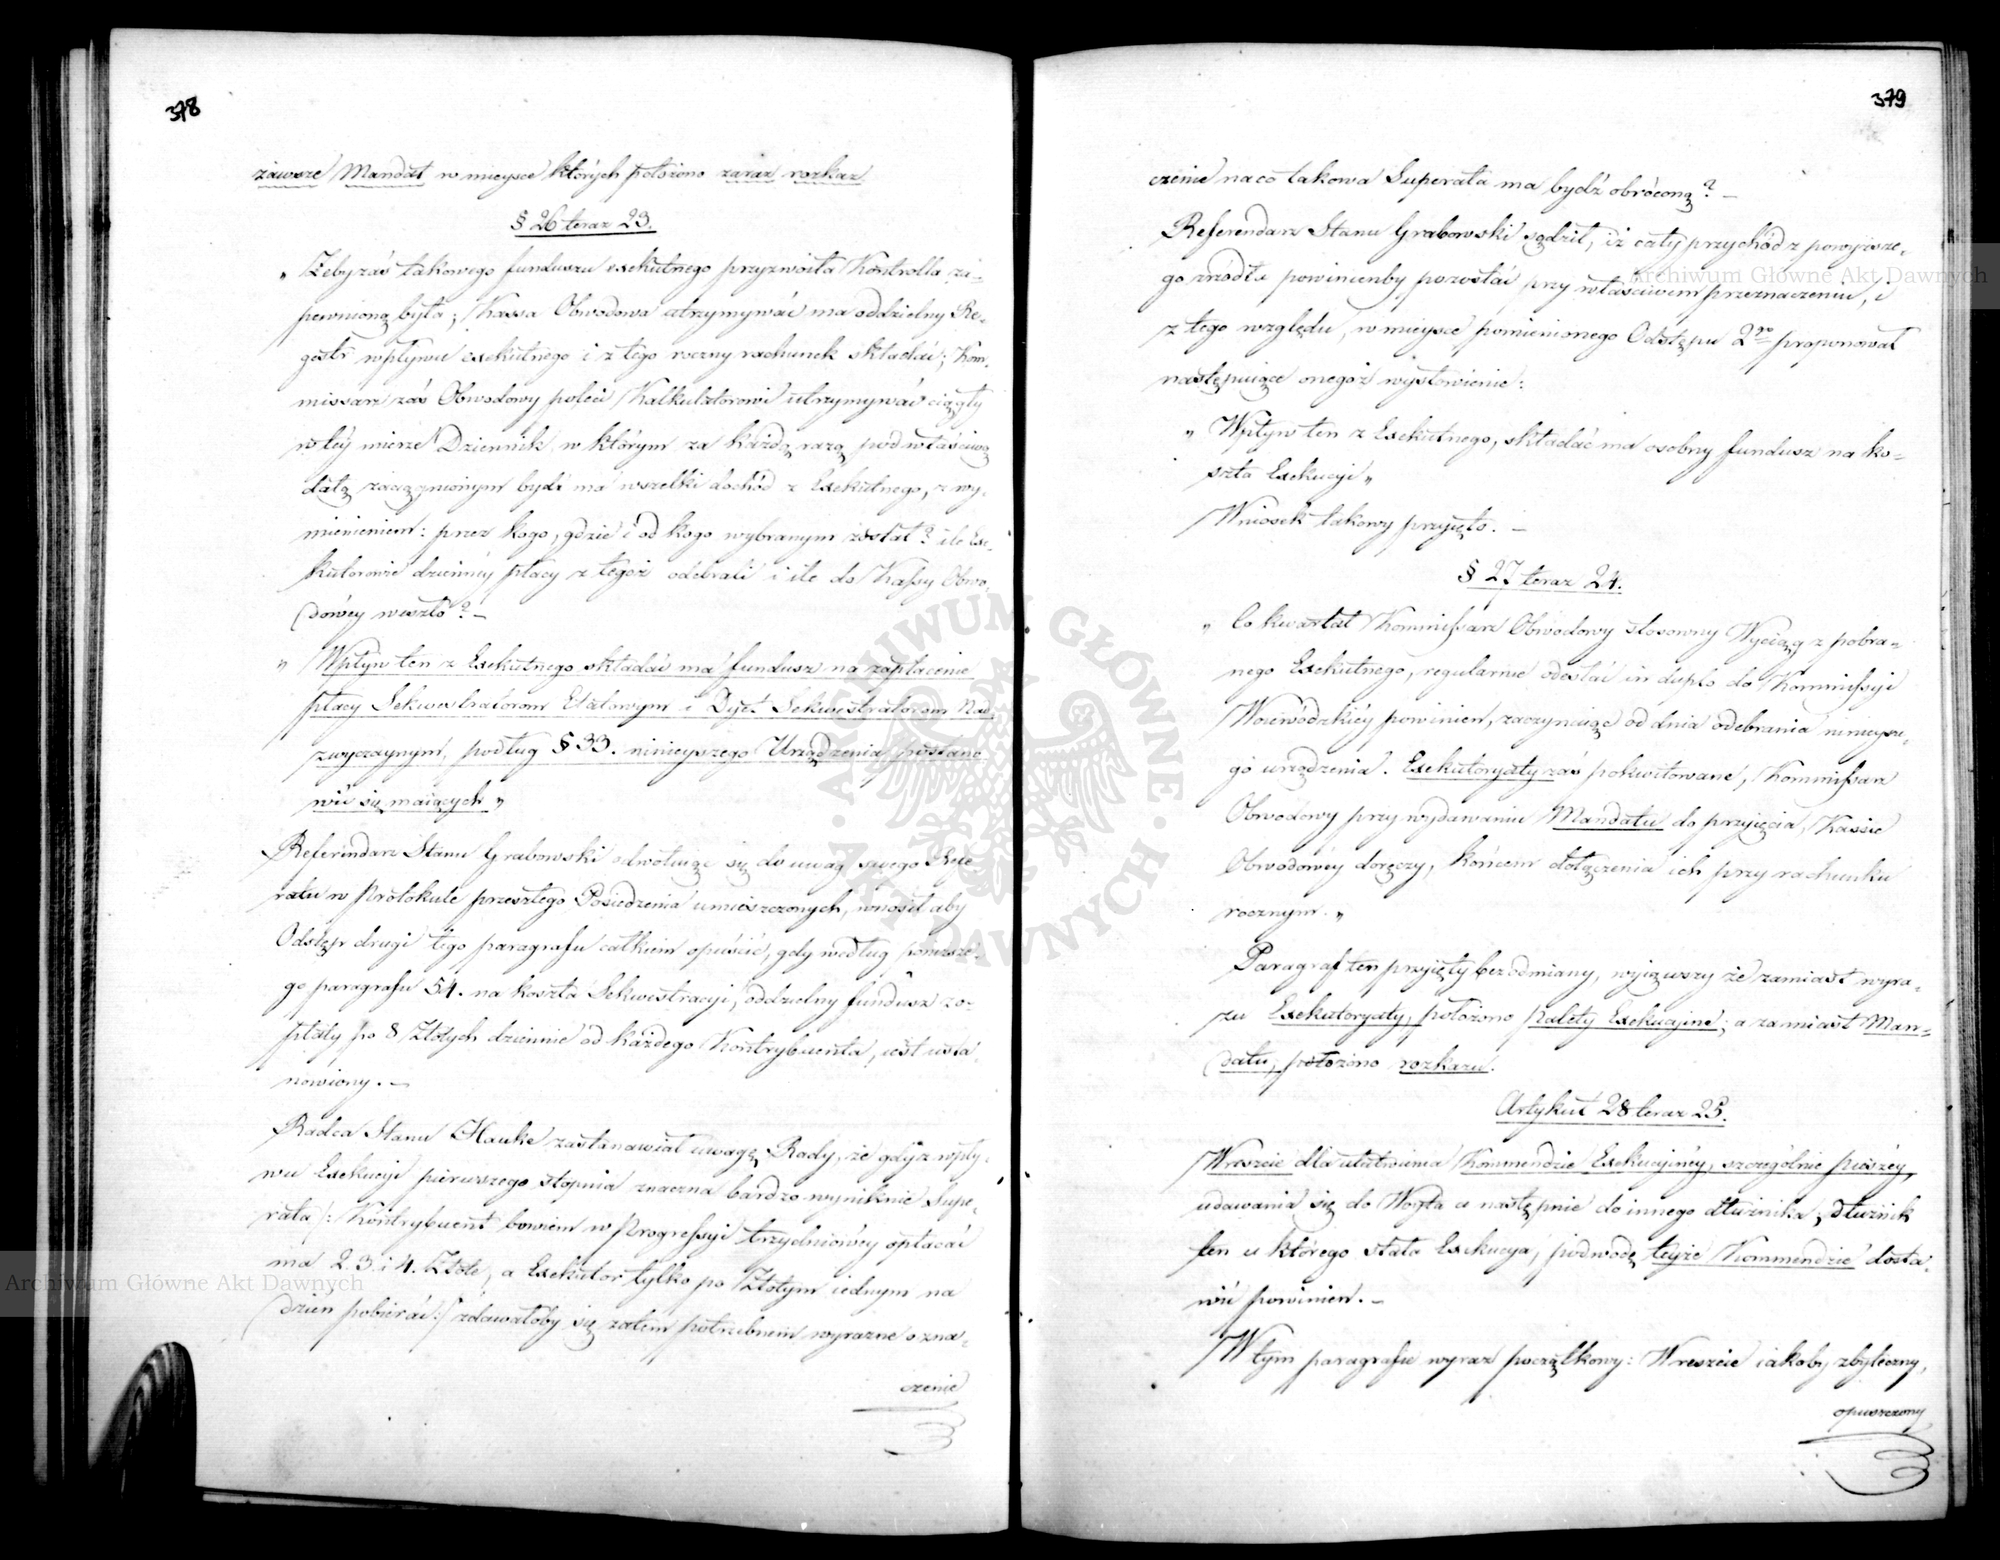 378
zawsze Mandat w mieysce których położono zaraz rozkaz
§ 26 teraz 23.
„ Żeby zaś takowego funduszu exekutnego przyzwoita Kontrolla za-
pewnioną była; Kassa Obwodowa utrzymywać ma oddzielny Re-
gestr wpływu exekutnego i z tego roczny rachunek składać; Kom-
missarz zaś Obwodowy poleci Kalkulatorowi utrzymywać ciągły
w tey mierze Dziennik, w którym za każdą razą pod właściwą
datą zaciągnionym bydź ma wszelki dochód z Exekutnego, z wy-
mienieniem: przez kogo, gdzie i od kogo wybranym został? ile Exe-
kutorowie dzienney płacy z tegoż odebrali i ile do Kassy Obwo-
dowey weszło? —
„ Wpływ ten z Exekutnego składać ma fundusz na zapłacenie
płacy Sekwestratorom Etatowym i Dyet Sekwestratorom Nad-
zwyczaynym, podług § 33. ninieyszego Urządzenia postano-
wić się maiących „
Referendarz Stanu Grabowski odwołuiąc się do uwag swego Refe-
ratu w Protokule przeszłego Posiedzenia umieszczonych, wnosił aby
Odstęp drugi tego paragrafu całkiem opuścić, gdy według
go paragrafu 54. na koszta Sekwestracyi, oddzielny fundusz z o-
płaty po 8 Złotych dziennie od każdego Kontrybuenta, iest usta-
nowiony. —
Radca Stanu Hauke zastanawiał uwagę Rady, że gdy z wpły-
wu Exekucyi pierwszego stopnia znaczna bardzo wyniknie Supe-
rata /: Kontrybuent bowiem w Progressyi trzydniowey opłacać
ma 2. 3. i 4. Złote, a Exekutor tylko po Złotym iednym na
dzień pobierać :/ zdawałoby się zatem potrzebnem wyraźne ozna-
czenie
379
czenie na co takowa Superata ma bydź obróconą? —
Referendarz Stanu Grabowski sądził, iż cały przychód z powyższe-
go źródła powinienby pozostać przy właściwem przeznaczeniu, i
z tego względu, w mieysce pomienionego Odstępu 2go proponował
następuiące onegoż wysłowienie:
„ Wpływ ten z Exekutnego, składać ma osobny fundusz na ko-
szta Exekucyi „
Wniosek takowy przyięto. —
§ 27 teraz 24.
„ Co kwartał Kommissarz Obwodowy stosowny Wyciąg z pobra-
nego Exekutnego, regularnie odesłać in duplo do Kommissyi
Woiewódzkiey powinien, zaczynaiąc od dnia odebrania ninieysze-
go urządzenia. Exekutoryały zaś pokwitowane, Kommissarz
Obwodowy przy wydawaniu Mandatu do przyięcia, Kassie
Obwodowey doręczy, końcem dołączenia ich przy rachunku
rocznym. „
Paragraf ten przyięty bez odmiany, wyiąwszy że zamiast wyra-
zu Exekutoryały, położono Palety Exekucyine; a zamiast Man-
datu, położono rozkazu.
Artykuł 28 teraz 25.
Wreszcie dla ułatwienia Kommendzie Exekucyiney, szczególnie pieszey,
udawania się do Woyta a następnie do innego dłużnika, dłużnik
ten u którego stała Exekucya, podwodę teyże Kommendzie dosta-
wić powinien. —
W tym paragrafie wyraz początkowy: Wreszcie iakoby zbyteczny,
opuszczony
ARCHIWUM GŁÓWNE AKT DAWNYCH
Archiwum Główne Akt Dawnych
Archiwum Główne Akt Dawnych